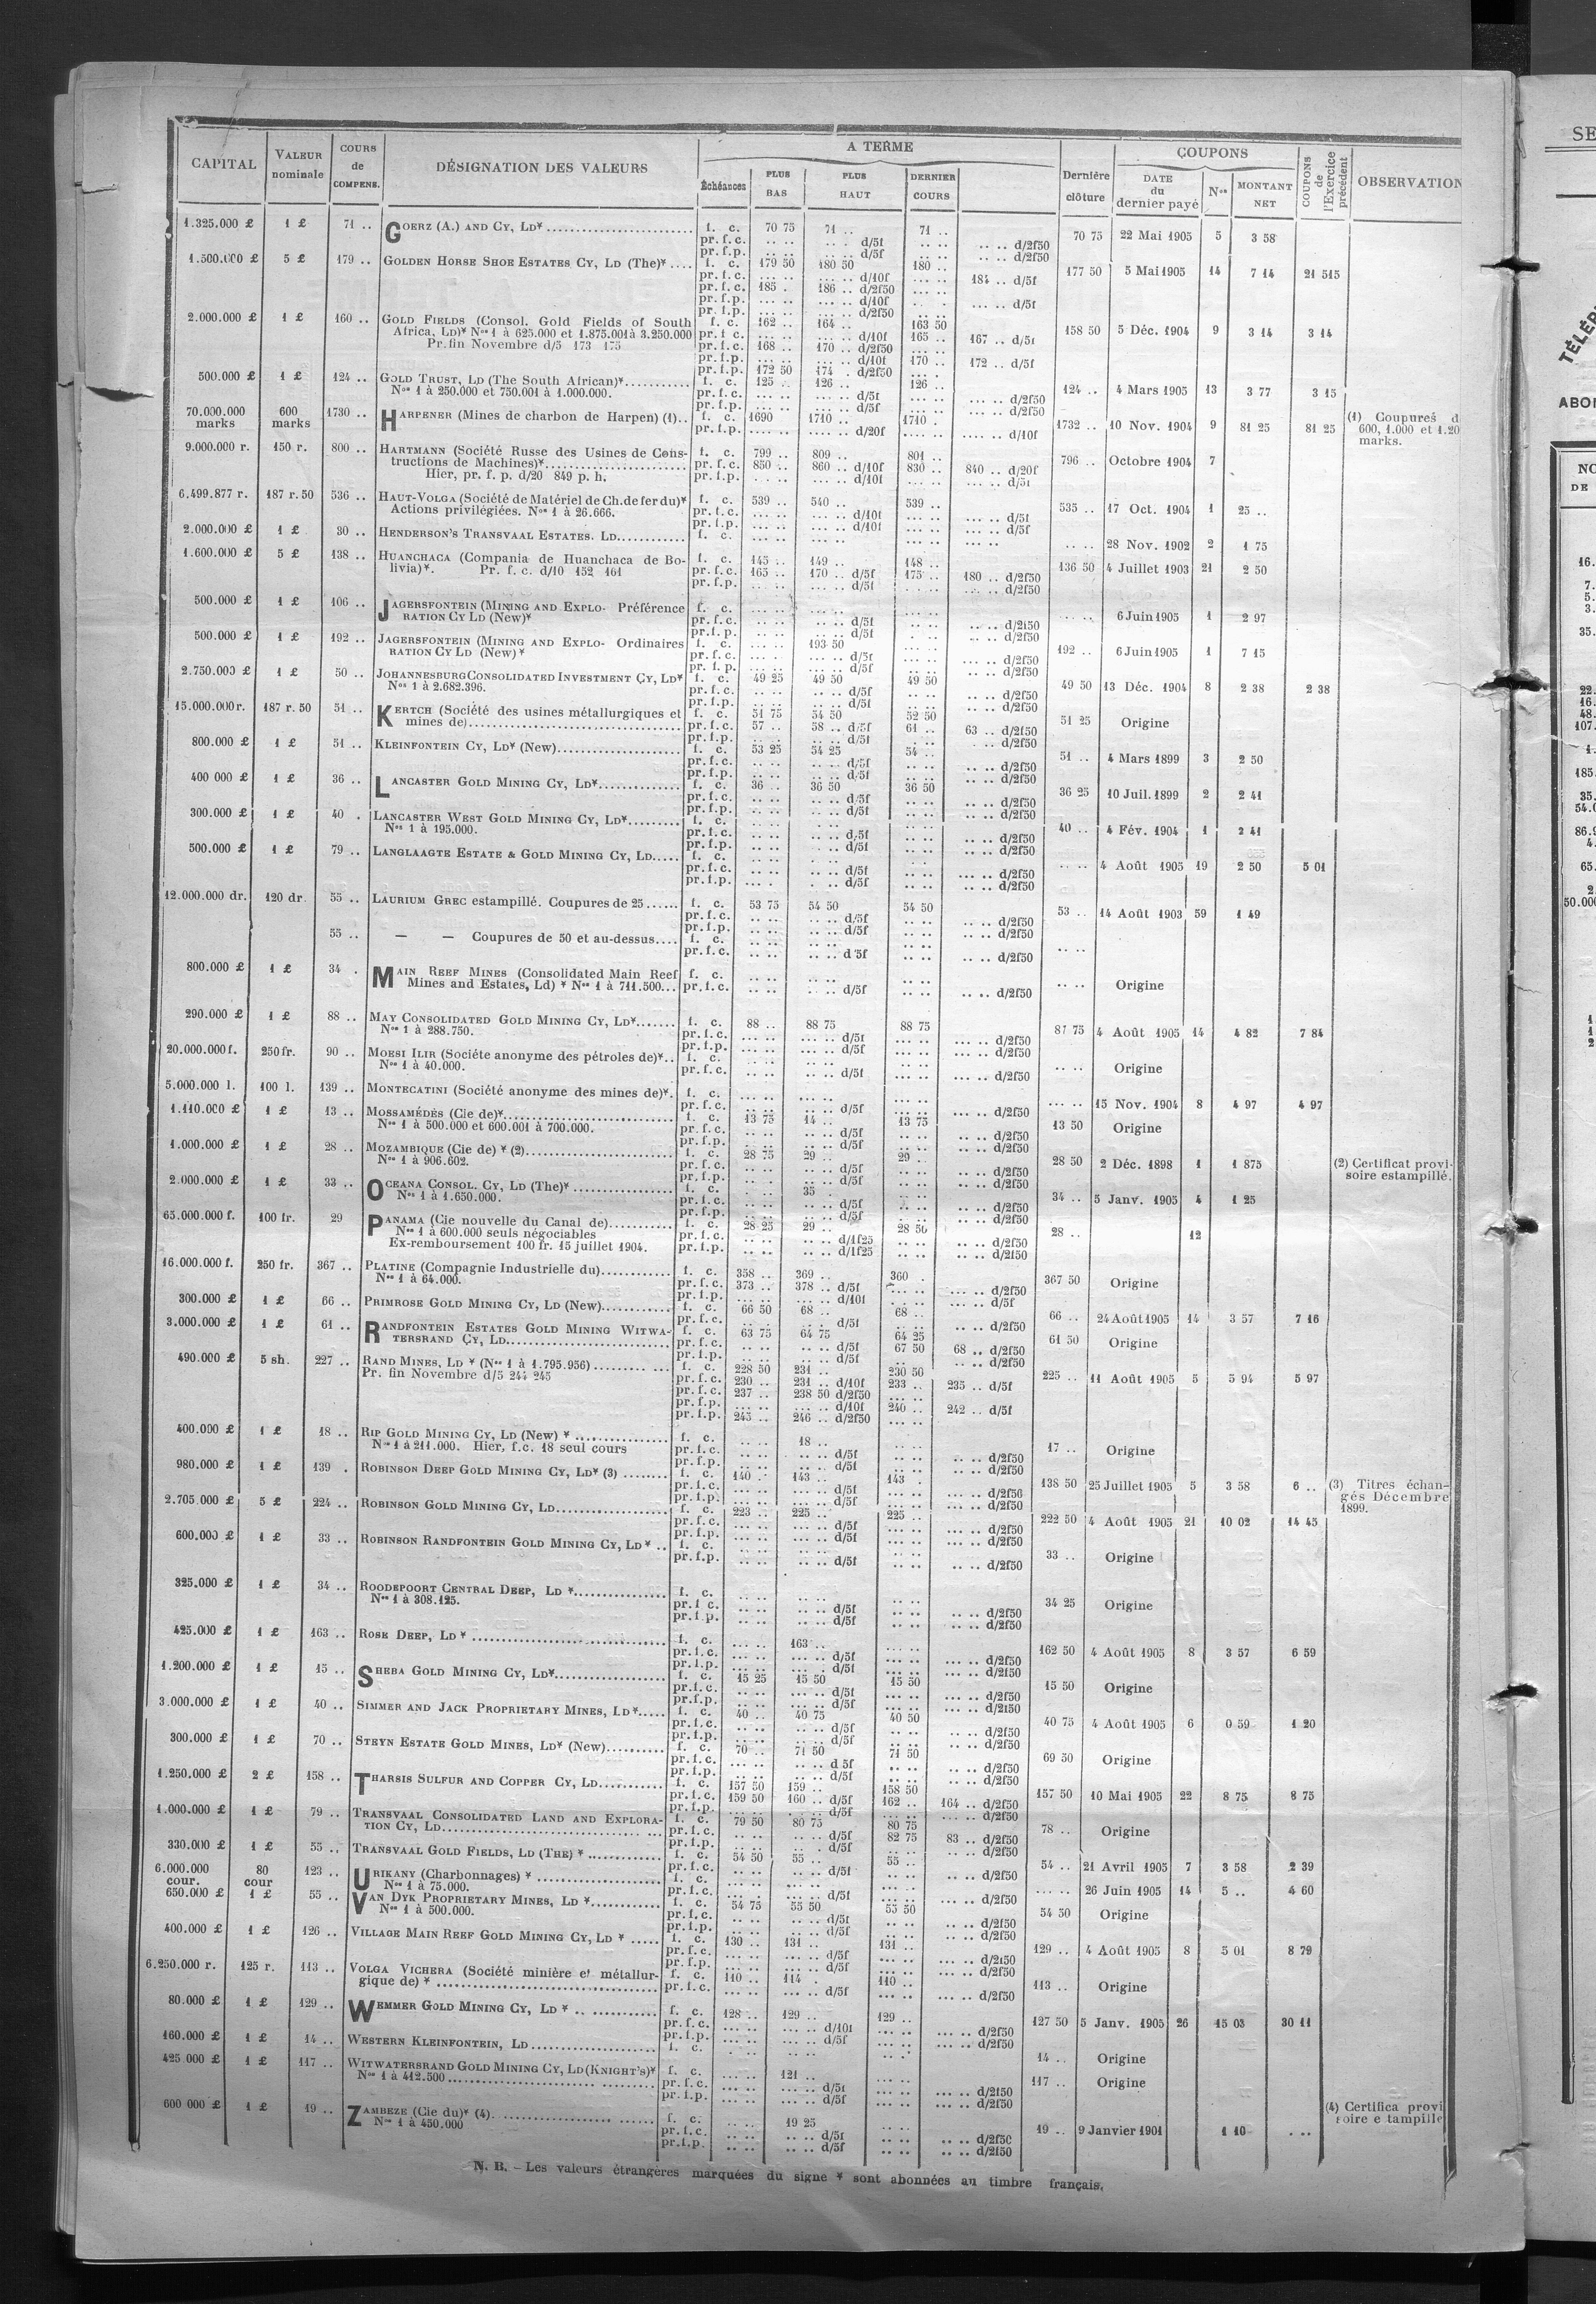 CAPITAL VALEUR nominale COURS de COMPENS. DÉSIGNATION DES VALEURS A TERME Échéances PLUS BAS PLUS HAUT DERNIER COURS Dernière clôture COUPONS DATE du dernier payé Nos MONTANT NET COUPONS de l'Exercice précédent OBSERVATION
1.325.000 £ 1 £ 71 .. GOERZ (A.) AND CY, LD* f. c. 70 75 71 .. 71 .. 70 75 22 Mai 1905 5 3 58
pr. f.c. .. .. .. .. d/5f .. .. .. .. d/2f50
pr. f.p. .. .. .. .. d/5f .. .. .. .. d/2f50
1.500.000 £ 5 £ 179 .. GOLDEN HORSE SHOE ESTATES CY, LD (The)* f. c. 179 50 180 50 180 .. 177 50 5 Mai 1905 14 7 14 21 515
pr. f.c. ... .. ... .. d/10f ... .. 184 .. d/5f
pr. f.c. 185 . 186 .. d/2f50 ... ..
pr. f.p. ... .. ... .. d/10f ... .. ... .. d/5f
pr. f.p. ... .. ... .. d/2f50
2.000.000 £ 1 £ 160 .. GOLD FIELDS (Consol. Gold Fields of South f. c. 162 .. 164 .. 163 50 158 50 5 Déc. 1904 9 3 14 3 14
Africa, LD)* Nos 1 à 625.000 et 1.875.001 à 3.250.000 pr. f. c. ... .. ... .. d/10f 165 .. 167 .. d/5f
Pr. fin Novembre d/5 173 175 pr. f.c. 168 .. 170 .. d/2f50 ... ..
pr. f.p. ... .. ... .. d/10f 170 .. 172 .. d/5f
pr. f.p. 172 50 174 . d/2f50 ... .
500.000 £ 1 £ 124 .. GOLD TRUST, LD (The South African)* f. c. 125 .. 126 .. 126 .. 124 .. 4 Mars 1905 13 3 77 3 15
Nos 1 à 250.000 et 750.001 à 1.000.000. pr. f.c. ... .. ... .. d/5f ... .. ... .. d/2f50
pr. f.p. ... .. ... .. d/5f ... .. ... .. d/2f50
70.000.000 marks 600 marks 1730 .. HARPENER (Mines de charbon de Harpen) (1).. f. c. 1690 1710 .. 1710 . 1732 .. 10 Nov. 1904 9 81 25 81 25 (1) Coupures d
pr. f.p. .... .. .... .. d/20f .... .. .... .. d/10f 600, 1.000 et 1.20
marks.
9.000.000 r. 150 r. 800 .. HARTMANN (Société Russe des Usines de Cons- f. c. 799 .. 809 .. 801 .. 796 .. Octobre 1904 7
tructions de Machines)* pr. f.c. 850 .. 860 .. d/10f 830 .. 840 .. d/20f
Hier, pr. f. p. d/20 849 p. h. pr. f.p. ... .. ... .. d/10f ... .. d/5f
6.499.877 r. 187 r. 50 536 .. HAUT-VOLGA (Société de Matériel de Ch. de fer du)* f. c. 539 .. 540 .. 539 .. 535 .. 17 Oct. 1904 1 25 ..
Actions privilégiées. Nos 1 à 26.666. pr. f.c. ... .. ... .. d/10f ... .. ... .. d/5f
pr. f.p. ... .. ... .. d/10f ... .. ... .. d/5f
2.000.000 £ 1 £ 30 .. HENDERSON'S TRANSVAAL ESTATES. LD f. c. ... .. ... .. ... .. .. .. 28 Nov. 1902 2 1 75
1.600.000 £ 5 £ 138 .. HUANCHACA (Compania de Huanchaca de Bo- f. c. 145 .. 149 .. 148 .. 136 50 4 Juillet 1903 21 2 50
livia)*. Pr. f. c. d/10 152 161 pr. f.c. 165 .. 170 .. d/5f 175 .. 180 .. d/2f50
pr. f.p. .. .. ... .. d/5f ... .. d/2f50
500.000 £ 1 £ 106 .. JAGERSFONTEIN (MINING AND EXPLO- Préférence f. c. ... .. ... .. ... .. ... .. 6 Juin 1905 1 2 97
RATION CY LD (New)* pr. f.c. ... .. ... .. d/5f ... .. d/2f50
pr. f. p. ... .. ... .. d/5f ... .. d/2f50
500.000 £ 1 £ 192 .. JAGERSFONTEIN (MINING AND EXPLO- Ordinaires f. c. ... .. 193 50 ... .. 192 .. 6 Juin 1905 1 7 15
RATION CY LD (New)* pr. f.c. ... .. ... .. d/5f ... .. ... .. d/2f50
pr. f. p. ... .. ... .. d/5f ... .. ... .. d/2f50
2.750.000 £ 1 £ 50 .. JOHANNESBURG CONSOLIDATED INVESTMENT CY, LD* f. c. 49 25 49 50 49 50 49 50 13 Déc. 1904 8 2 38 2 38
Nos 1 à 2.682.396. pr. f.c. .. .. .. .. d/5f .. .. .. .. d/2f50
pr. f.p. .. .. .. .. d/5f .. .. .. .. d/2f50
15.000.000 r. 187 r. 50 51 .. KERTCH (Société des usines métallurgiques et f. c. 51 75 54 50 52 50 51 25 Origine
mines de) pr. f.c. 57 .. 58 .. d/5f 61 .. 63 .. d/2f50
pr. f.p. .. .. .. .. d/5f .. .. .. d/2f50
800.000 £ 1 £ 51 .. KLEINFONTEIN CY, LD* (New) f. c. 53 25 54 25 54 .. 51 .. 4 Mars 1899 3 2 50
pr. f.c. .. .. .. .. d/5f .. .. .. .. d/2f50
pr. f.p. .. .. .. .. d/5f .. .. .. .. d/2f50
400 000 £ 1 £ 36 .. LANCASTER GOLD MINING CY, LD* f. c. 36 .. 36 50 36 50 36 25 10 Juil. 1899 2 2 41
pr. f.c. .. .. .. .. d/5f .. .. .. .. d/2f50
pr. f.p. .. .. .. .. d/5f .. .. .. .. d/2f50
300.000 £ 1 £ 40 . LANCASTER WEST GOLD MINING CY, LD* f. c. .. .. .. .. .. .. 40 .. 4 Fév. 1904 1 2 41
Nos 1 à 195.000. pr. f.c. .. .. .. .. d/5f .. .. .. .. d/2f50
pr. f.p. .. .. .. .. d/5f .. .. .. .. d/2f50
500.000 £ 1 £ 79 .. LANGLAAGTE ESTATE & GOLD MINING CY, LD f. c. .. .. .. .. .. .. .. .. 4 Août 1905 19 2 50 5 01
pr. f.c. .. .. .. .. d/5f .. .. ... .. d/2f50
pr. f.p. ... . . .. d/5f .. .. .. .. d/2f50
12.000.000 dr. 120 dr. 55 .. LAURIUM GREC estampillé. Coupures de 25 f. c. 53 75 54 50 54 50 53 .. 14 Août 1903 59 1 49
pr. f.c. .. .. .. .. d/5f .. .. .. .. d/2f50
pr. f.p. .. .. .. .. d/5f .. .. .. .. d/2f50
55 .. — — Coupures de 50 et au-dessus f. c. .. .. .. .. .. .. .. ..
pr. f.c. .. .. .. .. d 5f .. .. .. .. d/2f50
800.000 £ 1 £ 34 . MAIN REEF MINES (Consolidated Main Reef f. c. .. .. .. .. .. .. .. .. Origine
Mines and Estates, Ld) * Nos 1 à 711.500... pr. f.c. .. .. .. .. d/5f .. .. .. .. d/2f50
290.000 £ 1 £ 88 .. MAY CONSOLIDATED GOLD MINING CY, LD* f. c. 88 .. 88 75 88 75 87 75 4 Août 1905 14 4 82 7 84
Nos 1 à 288.750. pr. f.c. ... .. ... .. d/5f ... .. ... .. d/2f50
pr. f.p. ... .. ... .. d/5f ... .. ... .. d/2f50
20.000.000 f. 250 fr. 90 .. MOESI ILIR (Sociéte anonyme des pétroles de)*.. f. c. .. .. .. .. .. .. .. .. Origine
Nos 1 à 40.000. pr. f.c. .. .. .. .. d/5f .. .. ... .. d/2f50
5.000.000 l. 100 l. 139 .. MONTECATINI (Société anonyme des mines de)*. f. c. ... .. ... .. ... .. ... .. 15 Nov. 1904 8 4 97 4 97
pr. f.c. .. .. .. .. d/5f ... .. ... .. d/2f50
1.110.000 £ 1 £ 13 .. MOSSAMÉDÈS (Cie de)* f. c. 13 75 14 .. 13 75 13 50 Origine
Nos 1 à 500.000 et 600.001 à 700.000. pr. f.c. .. .. .. .. d/5f .. .. .. .. d/2f50
pr. f.p. .. .. .. .. d/5f .. .. .. .. d/2f50
1.000.000 £ 1 £ 28 .. MOZAMBIQUE (Cie de) * (2) f. c. 28 75 29 .. 29 .. 28 50 2 Déc. 1898 1 1 875 (2) Certificat provi-
Nos 1 à 906.602. pr. f.c. .. .. .. .. d/5f .. .. .. .. d/2f50 soire estampillé.
pr. f.p. .. .. .. .. d/5f .. .. .. .. d/2f50
2.000.000 £ 1 £ 33 .. OCEANA CONSOL. CY, LD (The)* f. c. . .. 35 . .. .. 34 .. 5 Janv. 1905 4 1 25
Nos 1 à 1.650.000. pr. f.c. .. .. .. .. d/5f .. .. .. .. d/2f50
pr. f.p. .. .. .. .. d/5f .. .. .. .. d/2f50
65.000.000 f. 100 fr. 29 PANAMA (Cie nouvelle du Canal de) f. c. 28 25 29 .. 28 50 28 .. 12
Nos 1 à 600.000 seuls négociables pr. f.c. .. .. .. .. d/1f25 .. .. .. .. d/2f50
Ex-remboursement 100 fr. 15 juillet 1904. pr. f.p. .. .. .. .. d/1f25 .. .. .. .. d/2f50
16.000.000 f. 250 fr. 367 .. PLATINE (Compagnie Industrielle du) f. c. 358 .. 369 .. 360 . 367 50 Origine
Nos 1 à 64.000. pr. f.c. 373 .. 378 .. d/5f ... .. ... .. d/2f50
pr. f.p. ... .. ... .. d/10f ... .. ... .. d/5f
300.000 £ 1 £ 66 .. PRIMROSE GOLD MINING CY, LD (New) f. c. 66 50 68 .. 68 .. 66 .. 24 Août 1905 14 3 57 7 16
pr. f.c. .. .. .. .. d/5f .. .. .. .. d/2f50
3.000.000 £ 1 £ 61 .. RANDFONTEIN ESTATES GOLD MINING WITWA- f. c. 63 75 64 75 64 25 61 50 Origine
TERSRAND CY, LD pr. f.c. .. .. .. .. d/5f 67 50 68 .. d/2f50
pr. f.p. .. .. .. .. d/5f .. .. .. d/2f50
490.000 £ 5 sh. 227 .. RAND MINES, LD * (Nos 1 à 1.795.956) f. c. 228 50 231 .. 230 50 225 .. 11 Août 1905 5 5 94 5 97
Pr. fin Novembre d/5 244 245 pr. f.c. 230 .. 231 .. d/10f 233 .. 235 .. d/5f
pr. f.c. 237 .. 238 50 d/2f50 ... ..
pr. f.p. ... .. ... .. d/10f 240 .. 242 .. d/5f
pr. f.p. 245 .. 246 .. d/2f50 ... ..
400.000 £ 1 £ 18 .. RIP GOLD MINING CY, LD (New) * f. c. .. .. 18 .. .. .. 17 .. Origine
Nos 1 à 211.000. Hier, f.c. 18 seul cours pr. f.c. .. .. .. .. d/5f .. .. .. .. d/2f50
pr. f.p. .. .. .. .. d/5f .. .. .. .. d/2f50
980.000 £ 1 £ 139 . ROBINSON DEEP GOLD MINING CY, LD* (3) f. c. 140 .. 143 .. 143 . 138 50 25 Juillet 1905 5 3 58 6 .. (3) Titres échan-
pr. f.c. ... .. ... .. d/5f ... .. ... .. d/2f50 gés Décembre
pr. f.p. ... .. ... .. d/5f ... .. ... .. d/2f50 1899.
2.705.000 £ 5 £ 224 .. ROBINSON GOLD MINING CY, LD f. c. 223 .. 225 .. 225 .. 222 50 4 Août 1905 21 10 02 14 45
pr. f.c. ... .. ... .. d/5f ... .. ... .. d/2f50
pr. f.p. ... .. ... .. d/5f ... .. ... .. d/2f50
600.000 £ 1 £ 33 .. ROBINSON RANDFONTEIN GOLD MINING CY, LD * .. f. c. .. .. .. .. .. .. 33 .. Origine
pr. f.p. .. .. .. .. d/5f .. .. .. .. d/2f50
325.000 £ 1 £ 34 .. ROODEPOORT CENTRAL DEEP, LD * f. c. .. .. .. .. .. .. 34 25 Origine
Nos 1 à 308.125. pr. f c. .. .. .. .. d/5f .. .. .. .. d/2f50
pr. f.p. .. .. .. .. d/5f .. .. .. .. d/2f50
425.000 £ 1 £ 163 .. ROSE DEEP, LD * f. c. ... .. 163 .. ... .. 162 50 4 Août 1905 8 3 57 6 59
pr. f.c. ... .. ... .. d/5f ... .. ... .. d/2f50
pr. f.p. ... .. ... .. d/5f ... .. ... .. d/2f50
1.200.000 £ 1 £ 15 .. SHEBA GOLD MINING CY, LD* f. c. 15 25 15 50 15 50 15 50 Origine
pr. f.c. .. .. ... .. d/5f ... .. ... .. d/2f50
pr. f.p. .. .. ... .. d/5f ... .. ... .. d/2f50
3.000.000 £ 1 £ 40 .. SIMMER AND JACK PROPRIETARY MINES, LD *..... f. c. 40 .. 40 75 40 50 40 75 4 Août 1905 6 0 59 1 20
pr. f.c. .. .. .. .. d/5f .. .. .. .. d/2f50
pr. f.p. .. .. .. .. d/5f .. .. .. .. d/2f50
300.000 £ 1 £ 70 .. STEYN ESTATE GOLD MINES, LD* (New) f. c. 70 .. 71 50 71 50 69 50 Origine
pr. f.c. ... .. .. .. d 5f .. .. .. .. d/2f50
pr. f.p. .. .. .. .. d/5f .. .. .. .. d/2f50
1.250.000 £ 2 £ 158 .. THARSIS SULFUR AND COPPER CY, LD f. c. 157 50 159 .. 158 50 157 50 10 Mai 1905 22 8 75 8 75
pr. f.c. 159 50 160 .. d/5f 162 .. 164 .. d/2f50
pr. f.p. ... .. ... .. d/5f ... .. ... .. d/2f50
1.000.000 £ 1 £ 79 .. TRANSVAAL CONSOLIDATED LAND AND EXPLORA- f. c. 79 50 80 75 80 75 78 .. Origine
TION CY, LD pr. f.c. .. .. .. .. d/5f 82 75 83 .. d/2f50
pr. f.p. .. .. .. . d/5f .. .. .. .. d/2f50
330.000 £ 1 £ 55 .. TRANSVAAL GOLD FIELDS, LD (THE) * f. c. 54 50 55 .. 55 .. 54 .. 21 Avril 1905 7 3 58 2 39
pr. f.c. .. .. .. .. d/5f .. .. .. .. d/2f50
6.000.000 cour. 80 cour 123 .. URIKANY (Charbonnages) * f. c. ... .. ... .. ... .. ... .. 26 Juin 1905 14 5 .. 4 60
Nos 1 à 75.000. pr. f.c. ... . ... .. d/5f ... .. ... .. d/2f50
650.000 £ 1 £ 55 .. VAN DYK PROPRIETARY MINES, LD * f. c. 54 75 55 50 55 50 54 50 Origine
Nos 1 à 500.000. pr. f.c. .. .. .. .. d/5f .. .. .. .. d/2f50
pr. f.p. .. .. .. .. d/5f .. .. .. .. d/2f50
400.000 £ 1 £ 126 .. VILLAGE MAIN REEF GOLD MINING CY, LD * f. c. 130 .. 131 .. 131 .. 129 .. 4 Août 1905 8 5 01 8 79
pr. f.c. ... .. ... .. d/5f ... .. ... .. d/2f50
pr. f.p. ... .. ... .. d/5f ... .. ... .. d/2f50
6.250.000 r. 125 r. 113 .. VOLGA VICHERA (Société minière et métallur- f. c. 110 .. 114 . 110 .. 113 .. Origine
gique de) * pr. f.c. ... .. ... .. d/5f ... .. ... .. d/2f50
80.000 £ 1 £ 129 .. WEMMER GOLD MINING CY, LD * f. c. 128 .. 129 .. 129 .. 127 50 5 Janv. 1905 26 15 03 30 11
pr. f.c. ... .. ... .. d/10f ... .. ... .. d/2f50
pr. f.p. ... .. ... .. d/5f ... .. ... .. d/2f50
160.000 £ 1 £ 14 .. WESTERN KLEINFONTEIN, LD f. c. . .. .. .. .. . 14 .. Origine
425.000 £ 1 £ 117 .. WITWATERSRAND GOLD MINING CY, LD (KNIGHT'S)* f. c. ... .. 121 .. ... .. 117 .. Origine
Nos 1 à 412.500 pr. f.c. ... .. ... .. d/5f ... .. ... .. d/2f50
pr. f.p. ... .. ... .. d/5f ... .. ... .. d/2f50
600 000 £ 1 £ 19 .. ZAMBEZE (Cie du)* (4) f. c. .. .. 19 25 .. .. 19 .. 9 Janvier 1901 1 10 . .. (4) Certifica provi
Nos 1 à 450.000 pr. f.c. .. .. .. .. d/5f .. .. .. .. d/2f50 soire e tampillé
pr. f.p. .. .. .. .. d/5f .. .. .. .. d/2f50
N. B. — Les valeurs étrangères marquées du signe * sont abonnées au timbre français.
SE
TÉLÉP
ABON
NO
DE